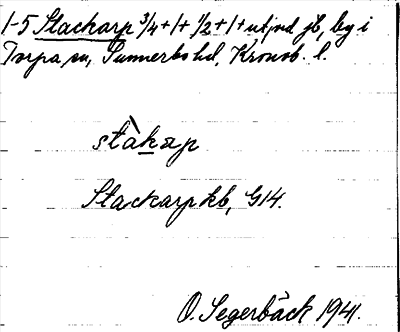 1-5 Stackarp 3/4+1+1/2+1+utjord jb, by i
Torpa sn, Sunnerbo hd, Kronob. l.
stàkap
Stackarp kb, G14.
O. Segerbäck 1941.